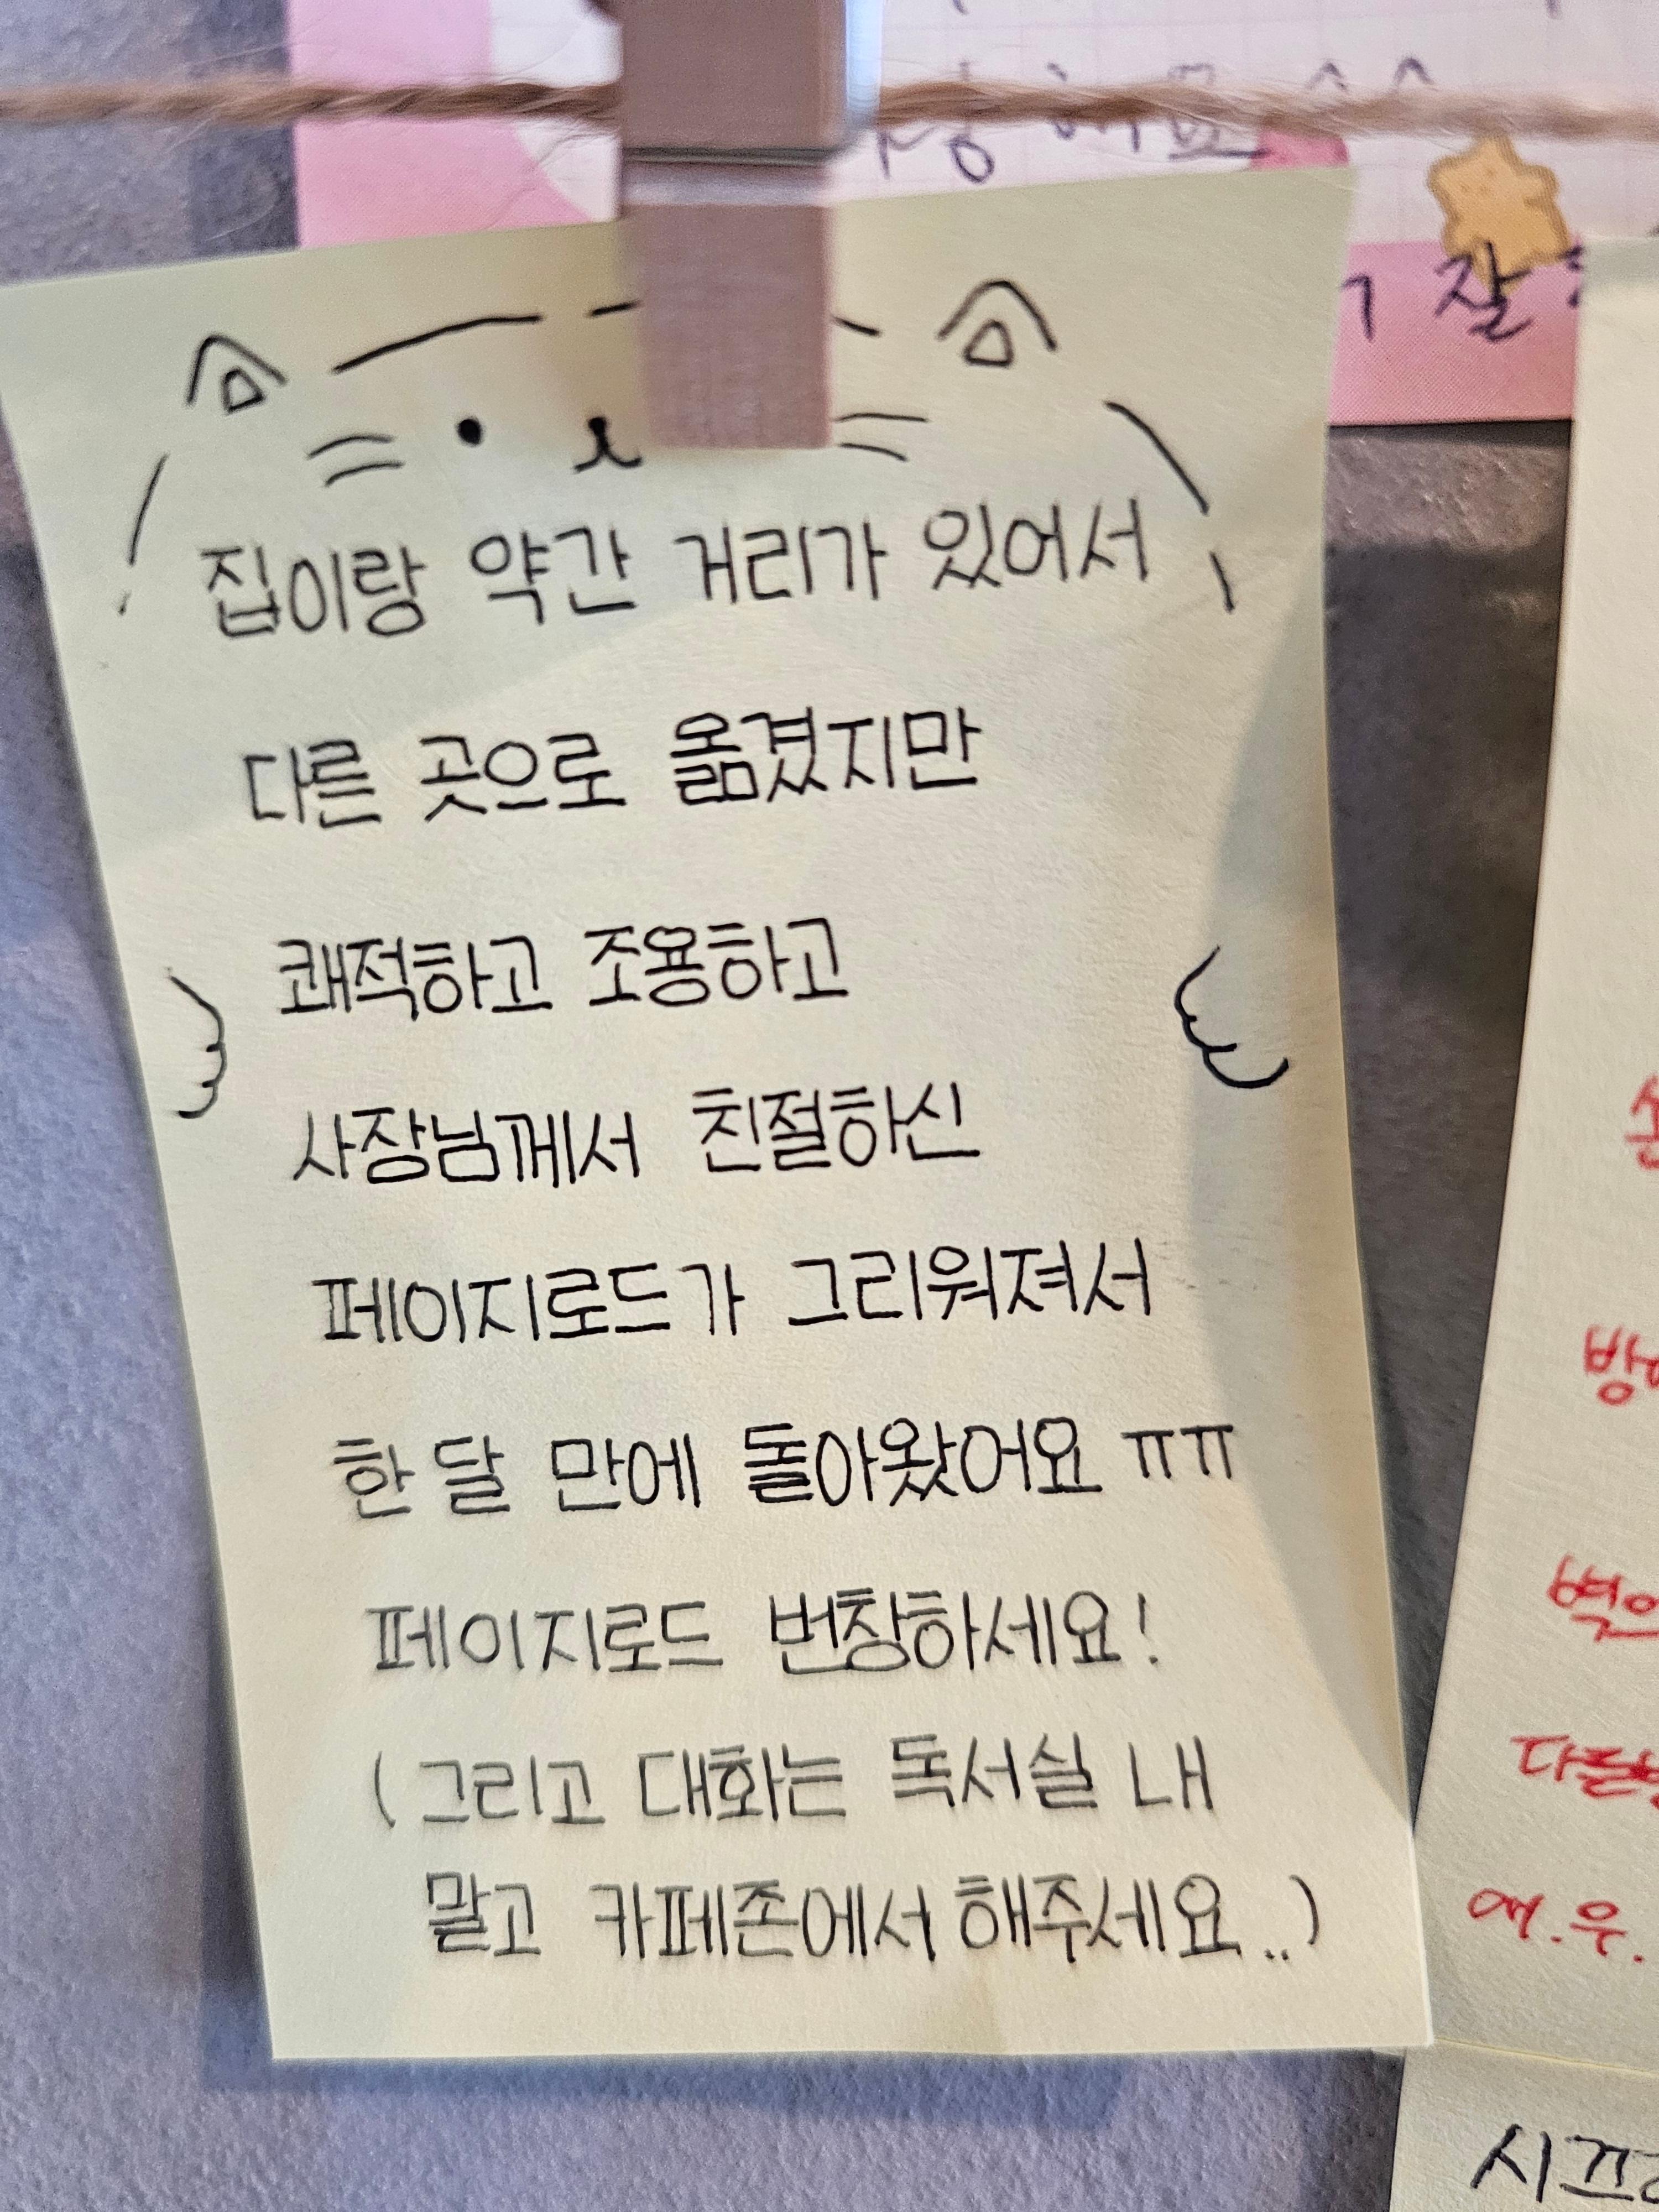 잘
집이랑 약간 거리가 있어서
다른 곳으로 옮겼지만
쾌적하고 조용하고
사장님께서 친절하신
페이지로드가 그리워져서
한달 만에 돌아왔어요 ㅠㅠ
페이지로드 번창하세요!
(그리고 대화는 독서실 내
말고 카페존에서 해주세요..)